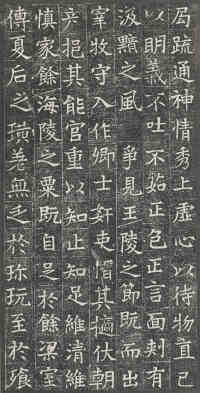 局疏通神情秀上虛心以待物直己
以明義不吐不茹正色正言面刾有
汲黯之風 爭見王陵之節既而出
宰牧守入作卿士奸吏慴其擿伏朝
彥挹其能官重以知止知足維清維
慎家餘海陵之粟既自足於餘梁室
傳夏后之璜差無乏於珎玩至於飱